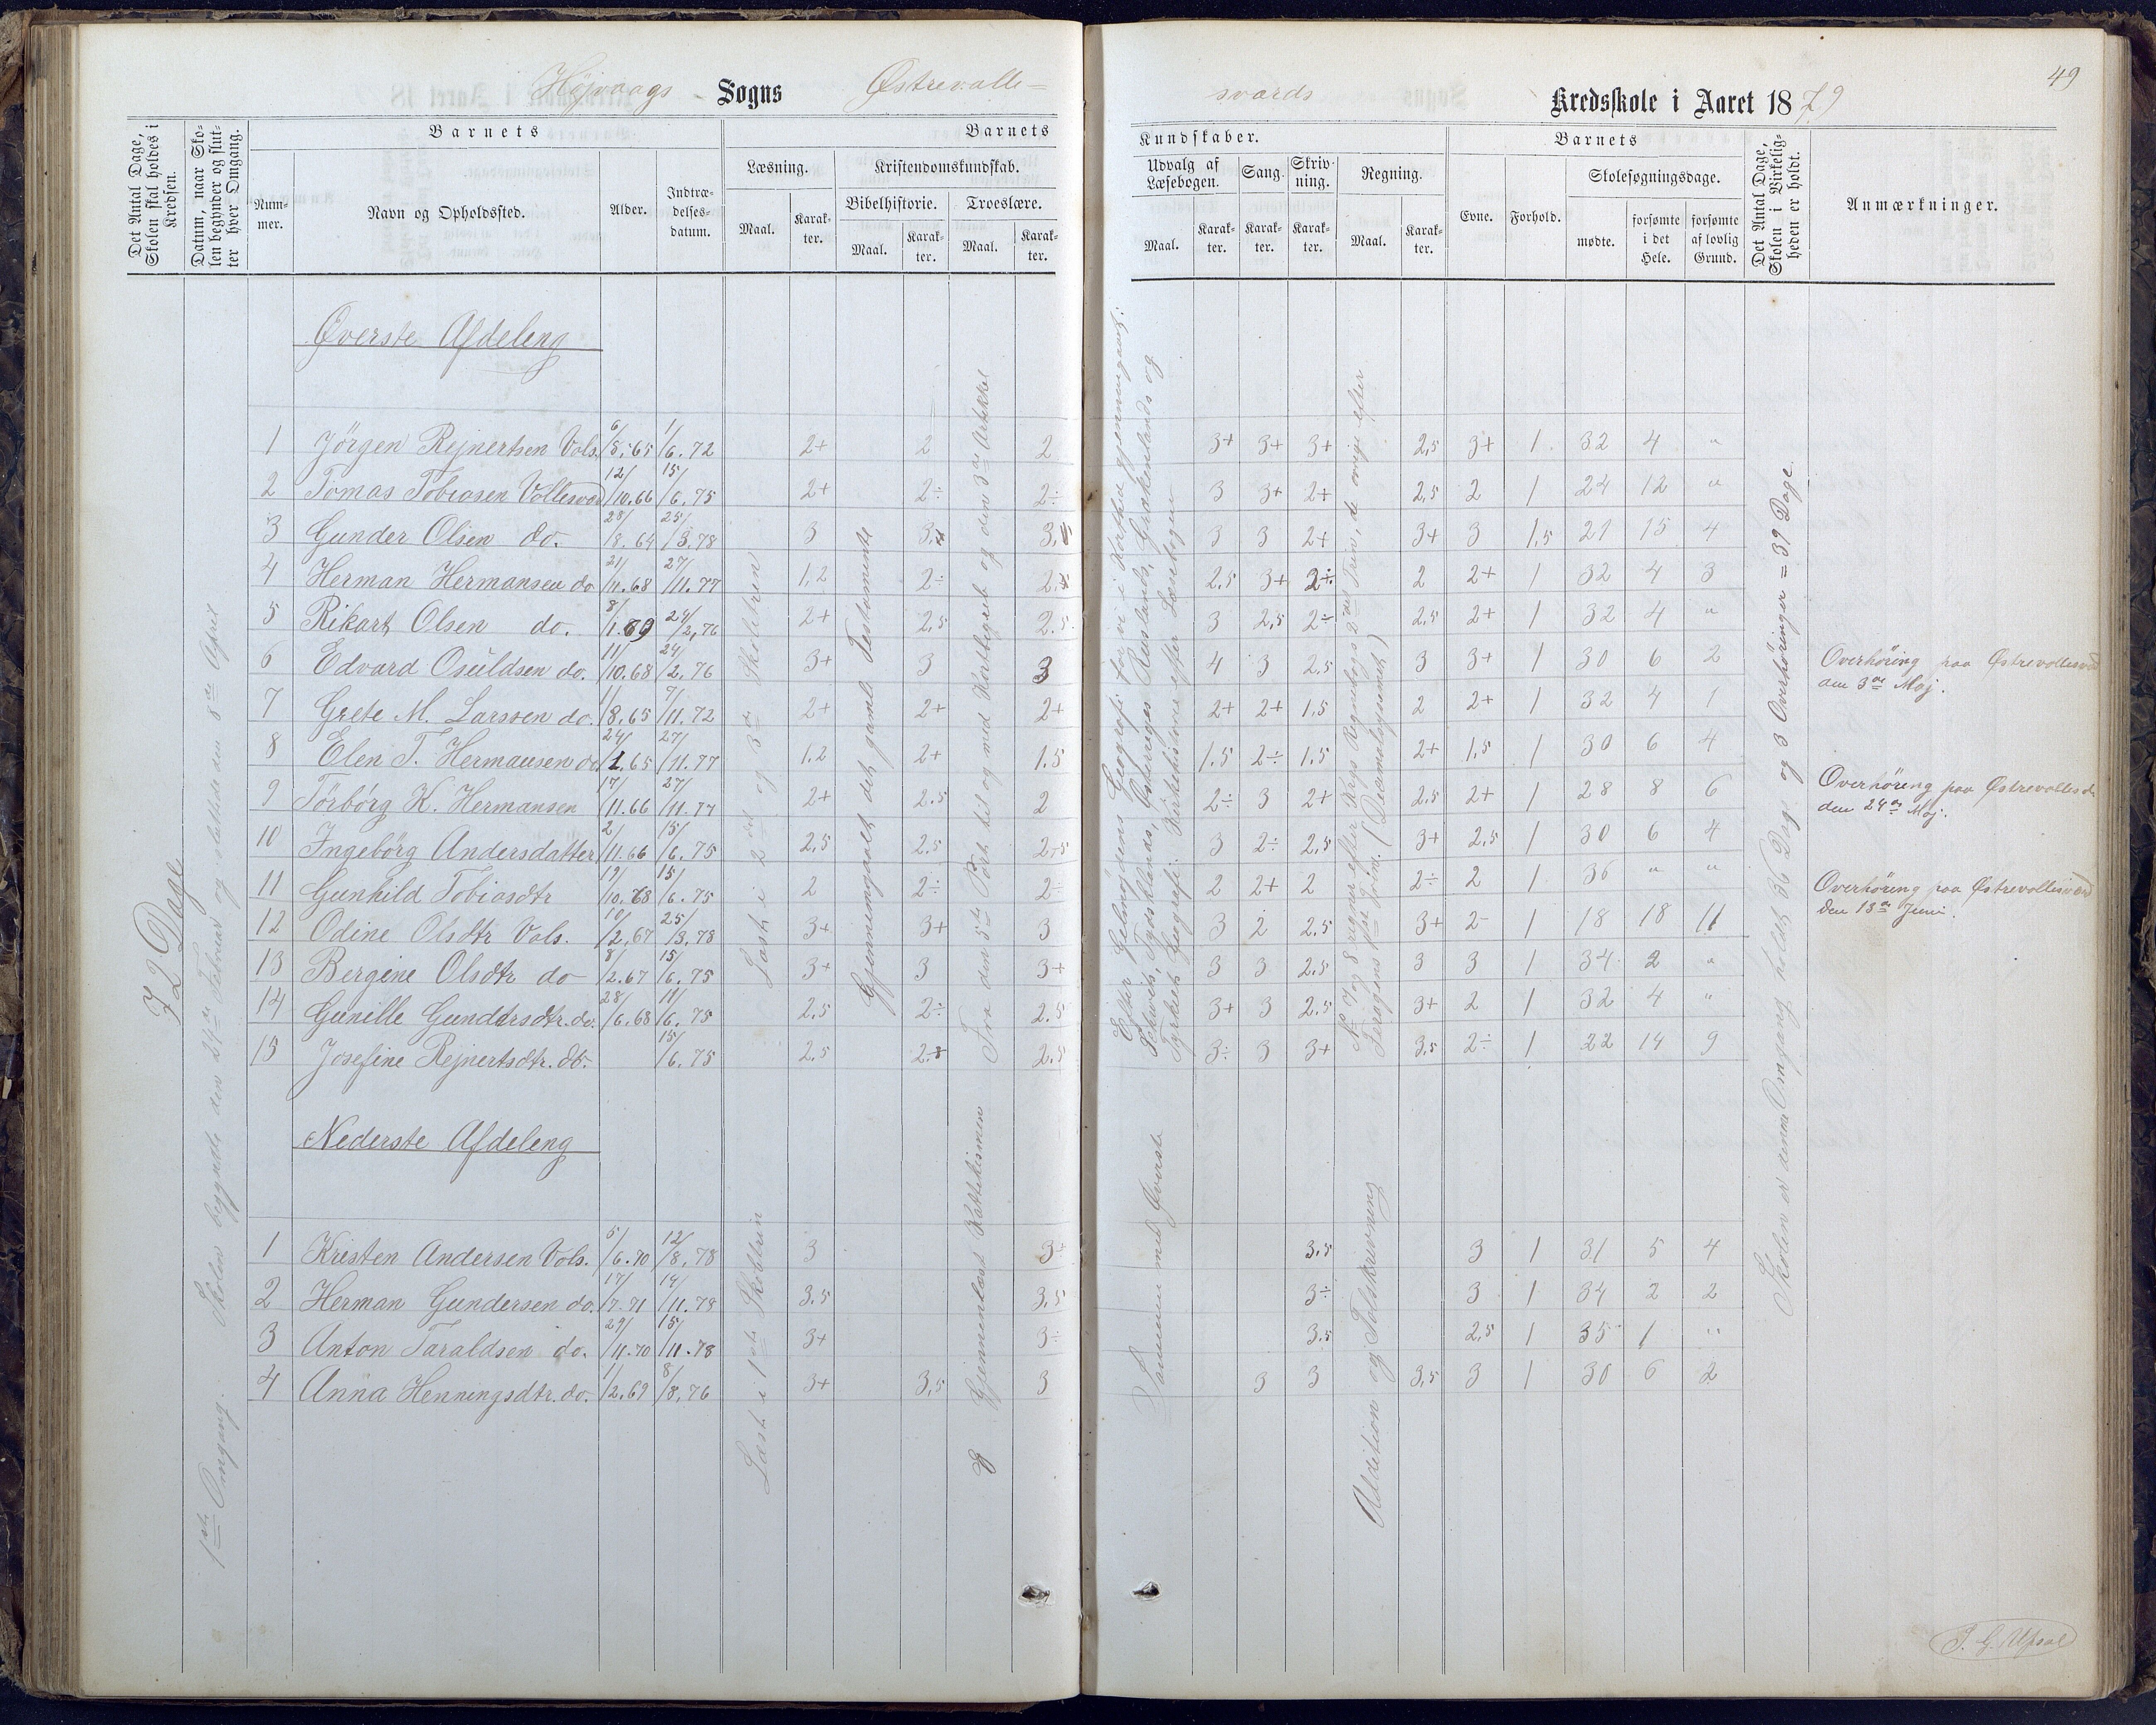 Højvaags Sogns Østrevalle=
Det Antal Dage, Skolen skal holdes i Kredsen.
Datum, naar Skolen begynder og slutter hver Omgang.
Barnets
Nummer.
Navn og Opholdssted.
Alder.
Indtrædelsesdatum.
Barnets
Læsning.
Maal.
Karakter.
Kristendomskundskab.
Bibelhistorie.
Maal.
Karakter.
Troeslære.
Maal.
Karakter.
72 Dage
1ste Omgang. Skolen begyndte den 24de Februar og sluttede den 8de April
Øverste Afdeling
1 Jörgen Rejnertsen Vols. 6/8.65 1/6.72 2+ 2 2
2 Tomas Tobiasen Vollesvær 12/10.66 15/6.75 2+ 2÷ 2÷
3 Gunder Olsen do. 28/8.64 25/3.78 3
4 Herman Hermansen do 21/11.68 27/11.77 1,2 2÷
5 Rikart Olsen do. 8/1.69 24/2.76 2+ 2,5 2.5
6 Edvard Osuldsen do. 11/10.68 24/2.76 3+ 3 3
7 Grete M. Larssen do. 1/8.65 7/11.72 2+ 2+ 2+
8 Elen T. Hermansen do 24/1.65 27/11.77 1.2 2+ 1.5
9 Törbörg K. Hermansen 17/11.66 27/11.77 2+ 2.5 2
10 Ingebörg Andersdatter 2/11.66 15/6.75 2,5 2.5 2,5
11 Gunhild Tobiasdtr 19/10.68 15/6.75 2 2÷ 2÷
12 Odine Olsdtr Vols. 10/2.67 25/3.78 3+ 3+ 3
13 Bergine Olsdtr do 8/2.67 15/6.75 3+ 3 3+
14 Gunille Gundersdtr. do. 28/6.68 11/6.75 2,5 2÷ 2.5
15 Josefine Rejnertsdtr. do. 15/6.75 2,5 2.5
Læst i 2det og 3de Skoletren
Gjennemgaaet det gamle Testamente
Fra den 5te Part til og med Kortbegreb og den 3de Artikkel
Nederste Afdeling
1 Kristen Andersen Vols. 5/6.70 12/8.78 3 3÷
2 Herman Gundersen do. 17/7.71 14/11.78 3.5 3,5
3 Anton Taraldsen do. 29/11.70 15/11.78 3+ 3÷
4 Anna Henningsdtr. do. 1/2.69 8/8.76 3+ 3,5 3
Læst i 1ste Skoletrin
Gjennemlæst Kattekismen
49
sværds Kredsskole i Aaret 1879
Kundskaber.
Udvalg af Læsebogen.
Maal.
Karakter.
Sang.
Karakter.
Skrivning.
Karakter.
Regning.
Maal.
Karakter.
Barnets
Evne.
Forhold.
Skolesøgningsdage.
mødte.
forsømte i det Hele.
forsømte af lovlig Grund.
Det Antal Dage, Skolen i Virkeligheden er holdt.
Anmærkninger.
Efter Geelmøjdens Geografi have vi i Korthed gjennemgaaet:
Schweits, Tyskland, Østerriges, Ruslands, Grækenlands og
Tyrkiets Geografi. Kirkehistorie efter Læsebogen
No 7 og 8 regner efter Krys Regnebogs 2det Trin, de övrige efter
Faragens 1ste Trin. (Decimalsystemet)
3+ 3+ 3+ 2,5 3+ 1 32 4 "
3 3+ 2+ 2,5 2 1 24 12 "
3 3 2+ 3+ 3 1,5 21 15 4
2,5 3+ 2÷ 2 2+ 1 32 4 3
3 2,5 2÷ 2,5 2+ 1 32 4 "
4 3 2.5 3 3+ 1 30 6 2
2+ 2+ 1.5 2 2+ 1 32 4 1
1.5 2÷ 1.5 2+ 1,5 1 30 6 4
2÷ 3 2+ 2,5 2+ 1 28 8 6
3 2÷ 2,5 3+ 2,5 1 30 6 4
2 2+ 2 2÷ 2 1 36 " "
3 2 2.5 3+ 2- 1 18 18 11
3 3 2.5 3 3 1 34 2 "
3+ 3 2.5 3+ 2 1 32 4 "
3÷ 3 3+ 3,5 2÷ 1 22 14 9
Sammen med Øverste
Addition og Talskrivning
3.5 3 1 31 5 4
3÷ 3 1 34 2 2
3.5 2,5 1 35 1 "
3 3 3,5 3 1 30 6 2
Skolen er denne Omgang holdt 36 Dage og 3 Overhöringer = 39 Dage.
Overhöring paa Østrevollesvæd
den 3de Maj.
Overhöring paa Østrevollesd.
den 24de Maj.
Overhöring paa Østrevollesværd
den 13de Juni.